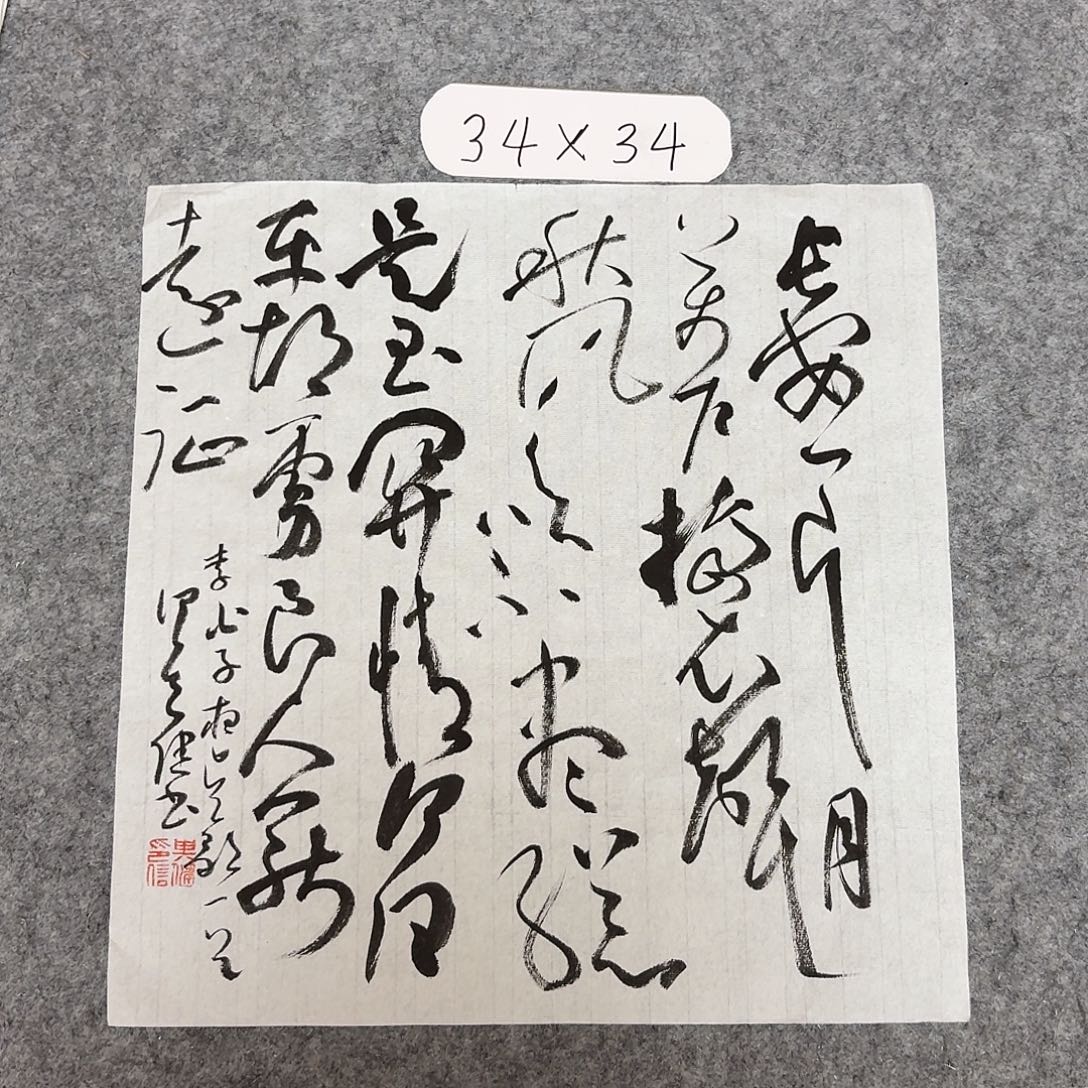 34×34
長安一片月
萬戶搗衣聲
秋風吹不盡總
是玉關情何日
平胡虜良人罷
遠征
李白子夜吳歌一首
健书